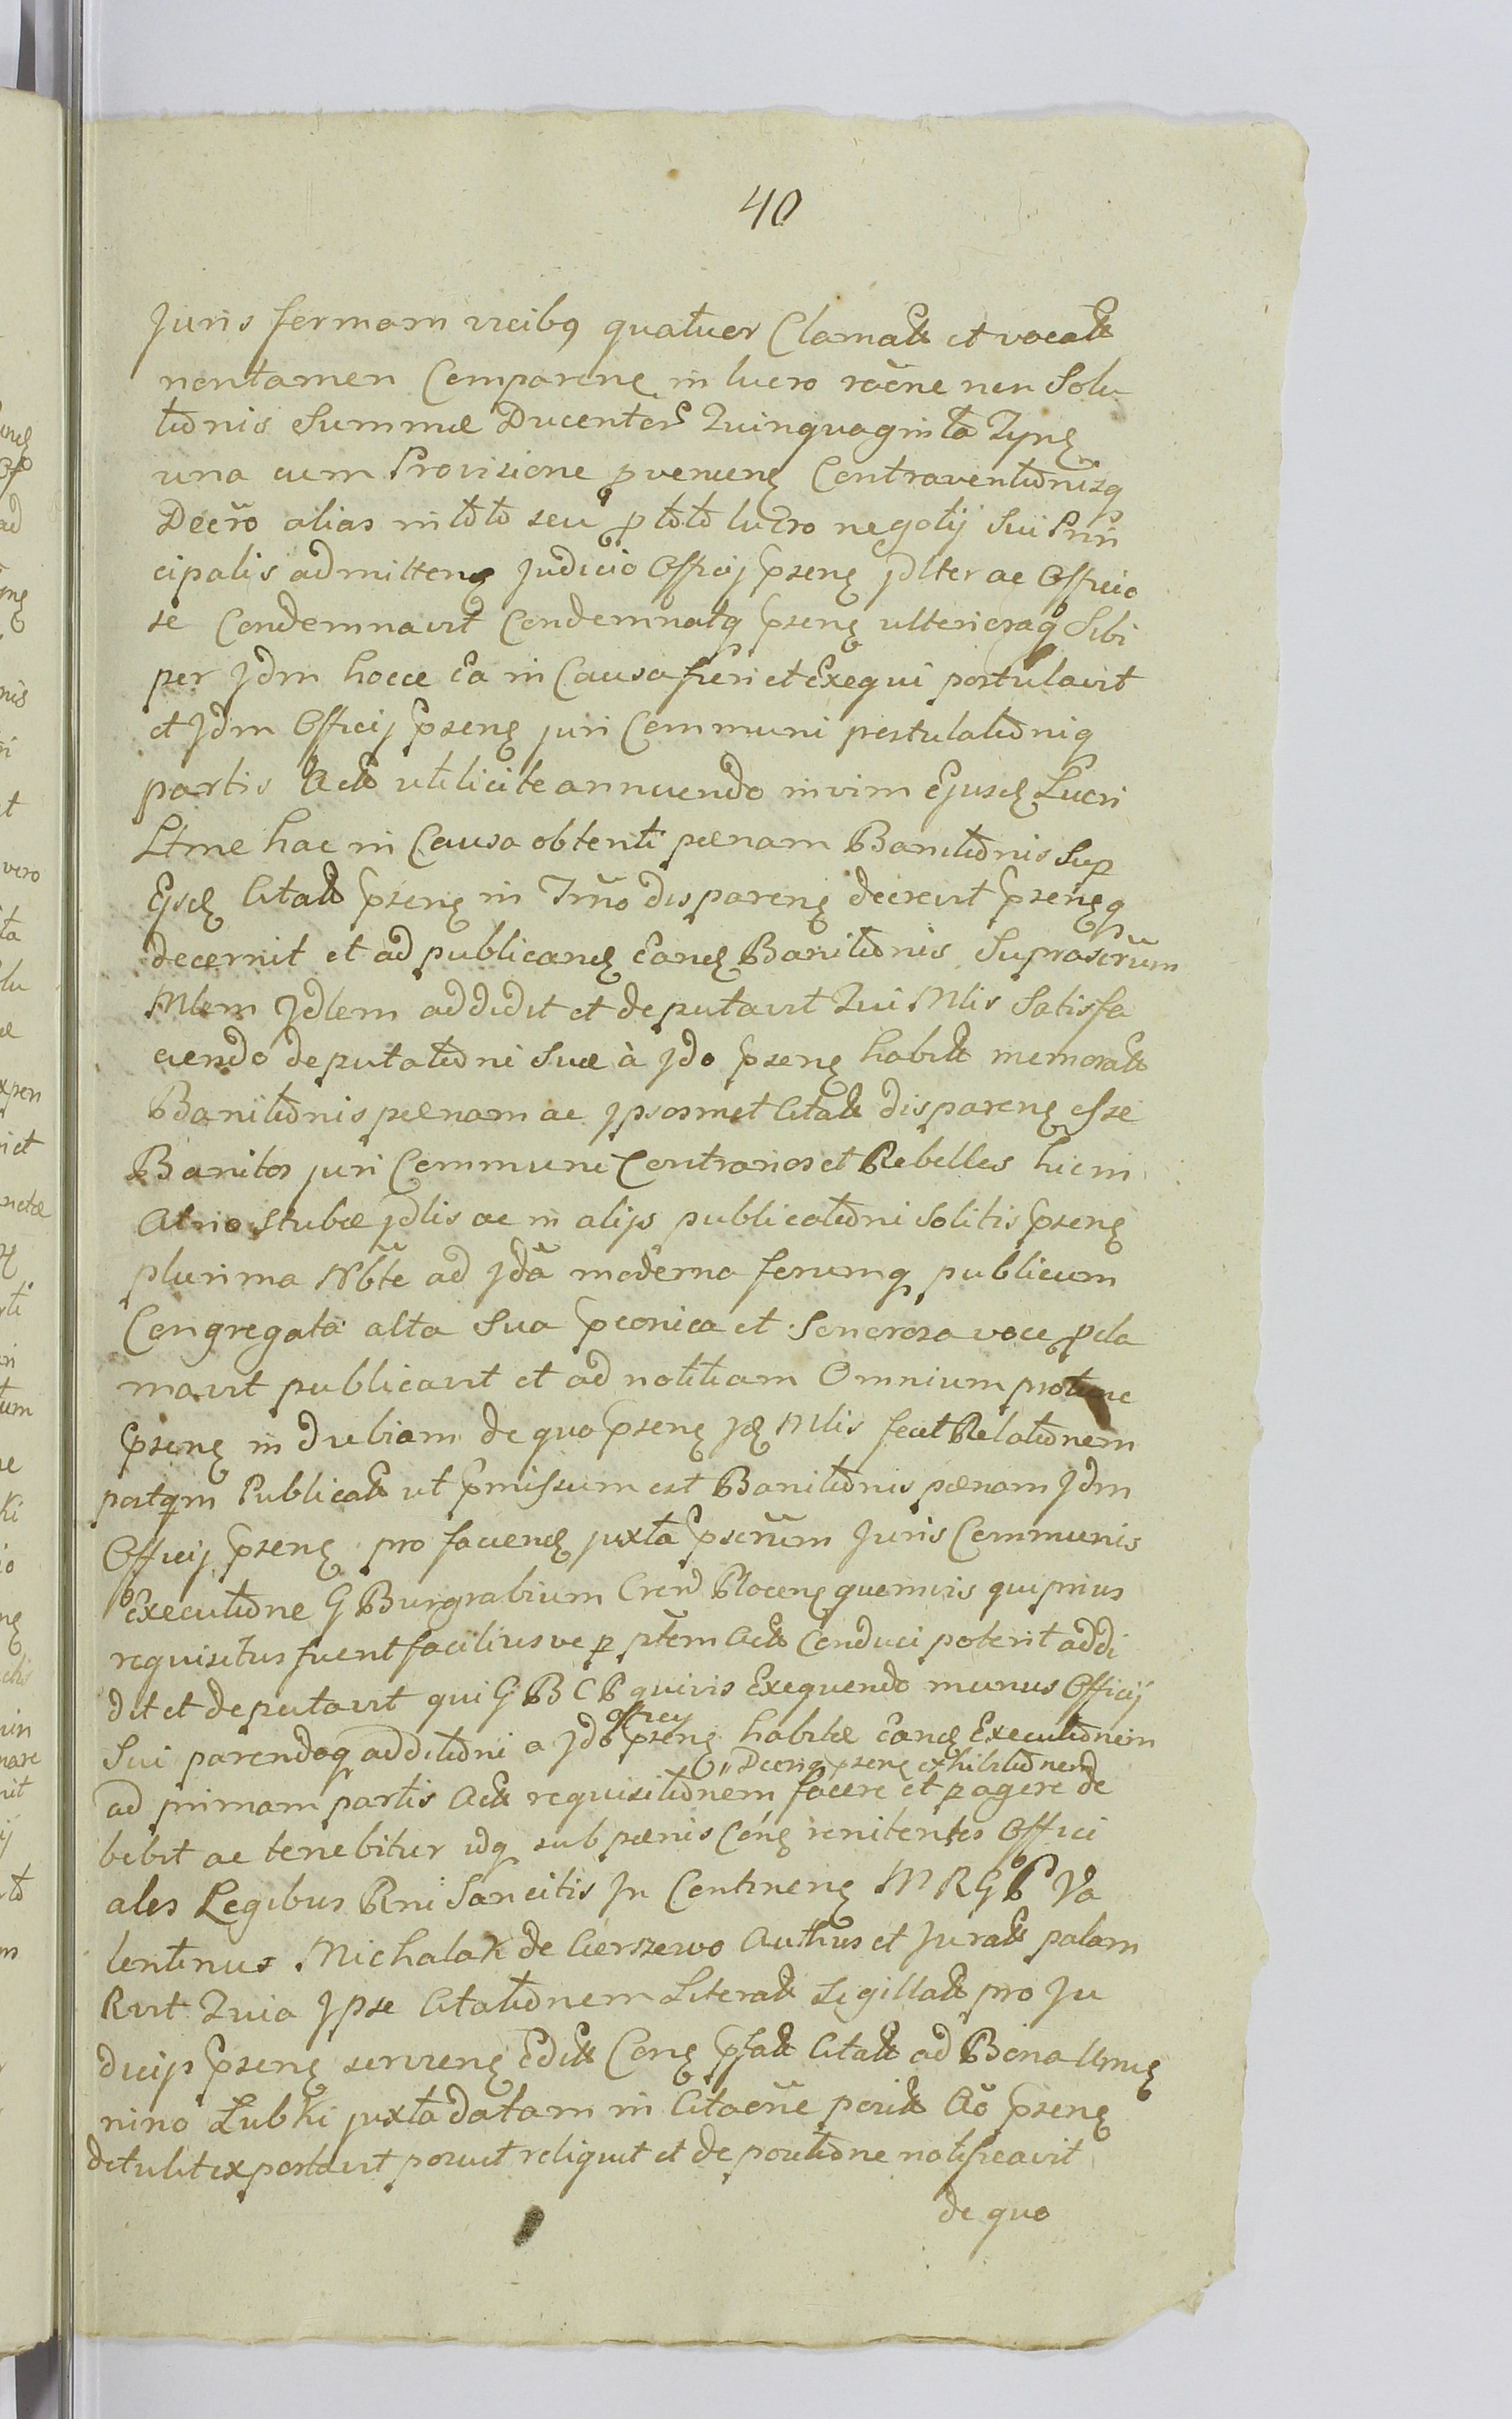 40
Juris formam vicibq quatuor Clamats et vocats
nontamen Comparenę in lucro raõne non Solu
tionis Summæ Ducentor Quinquaginta Tynę
una cum Provisione pvenienę Contraventionisq
Decro alias in toto seu p toto lucro negotij Sui Prin
cipalis admittenę Judicio Officij pszenę jdlter ac Officio
se Condemnavit Condemnatq pszenę ulterioraq Sibi
per Jdm hocce ea in Causa fieri et Exequi postulavit
et Jdm Officij pszenę juri Communi postulationiq
partis Acts uti licite annuendo in vim Ejusdę Lucri
Ltme hac in Causa obtenti pænam Banitionis Sup
Eosdę Citats pszenę in Trno disparenę decrevit pszenęq
decernit et ad publicandę Eandę Banitionis Suprascrum
Mlem Jdlem addidit et deputavit Qui Mlis Satisfa
ciendo deputationi Suæ à Jdo pszenę habits memorats
Banitionis pænam ac Jpsosmet Citats disparenę esse
Banitos juri Communi Contrarios et Rebelles hic in
Atrio Stubæ jdlis ac in alijs publicationi Solitis pszenę
plurima Nbte ad Jda moderna forumq publicum
Congregata alta Sua pconica et Sonorosa voce pcla
mavit publicavit et ad notitiam Omnium protunc
pszenę in dubiam de quo pszenę jdę Mlis fecit Relationem
postqm Publicats ut pmissum est Banitionis pænam Jdm
Officij pszenę pro faciendę juxta pscrum Juris Communis
Executione G Burgrabium Cren Plocenę quemvis qui prius
requisitus fuerit faciliusve p ptem Acts Conduci poterit addi
dit et deputavit qui G B C P quivis Exequendo munus Officij
officij
Sui parendoq additioni a Jdo pszenę habitæ Eandę Executionem
Decriq pszenę exhibitionem
ad primam partis Acts requisitionem facere et pagere de
bebit ac tenebitur idq sub pænis Conę renitentes Offici
ales Legibus Rni Sancitis Jn Continenę M R G P Va
lentinus Michalak de Cierszewo Authus et Jurats palam
Rvit Quia Jpse Citationem Literats Sigillats pro Ju
dicijs pszenę servienę Edits Conę pfats Citats ad Bona
nino Łubki juxta datam in Citaone posits Ao pszenę
detulit exportavit posuit reliquit et de positione notificavit
de quo